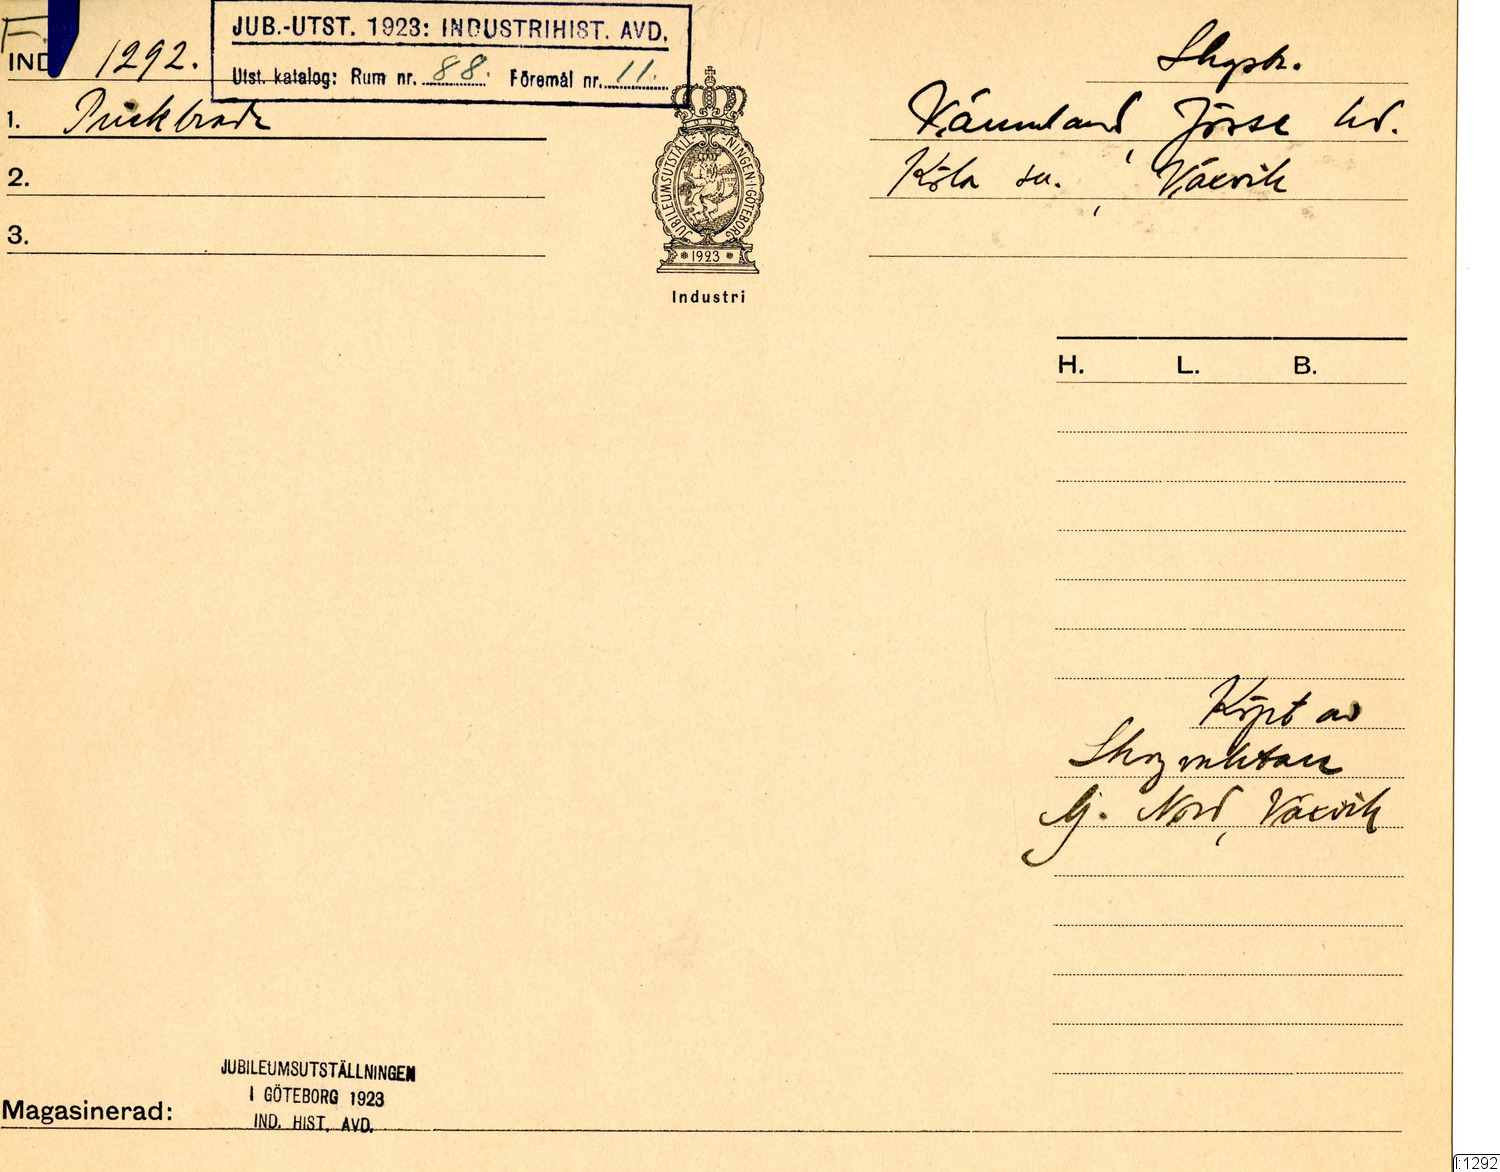 F.
IND 1292.
JUB.-UTST. 1923: INDUSTRIHIST. AVD.
Utst. katalog: Rum nr. 88. Föremål nr. 11.
Skgsbr.
1. Prickbräde
Värmland, Jösse hd.
2.
Köla sn., Växvik
3.
JUBILEUMSUTSTÄLL-NINGEN I GÖTEBORG
1923
Industri
H. L. B.
Köpt av
Skogvaktare
G. Nord, Växvik
JUBILEUMSUTSTÄLLNINGEN
I GÖTEBORG 1923
IND. HIST. AVD.
Magasinerad:
I:1292